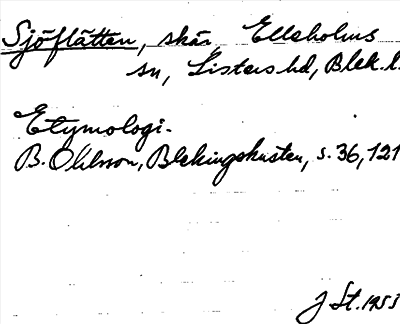 Sjöflätten, skär, Elleholms
sn, Listers hd, Blek. l.
Etymologi.
B. Ohlsson, Blekingskusten, s. 36, 121
J St. 1953